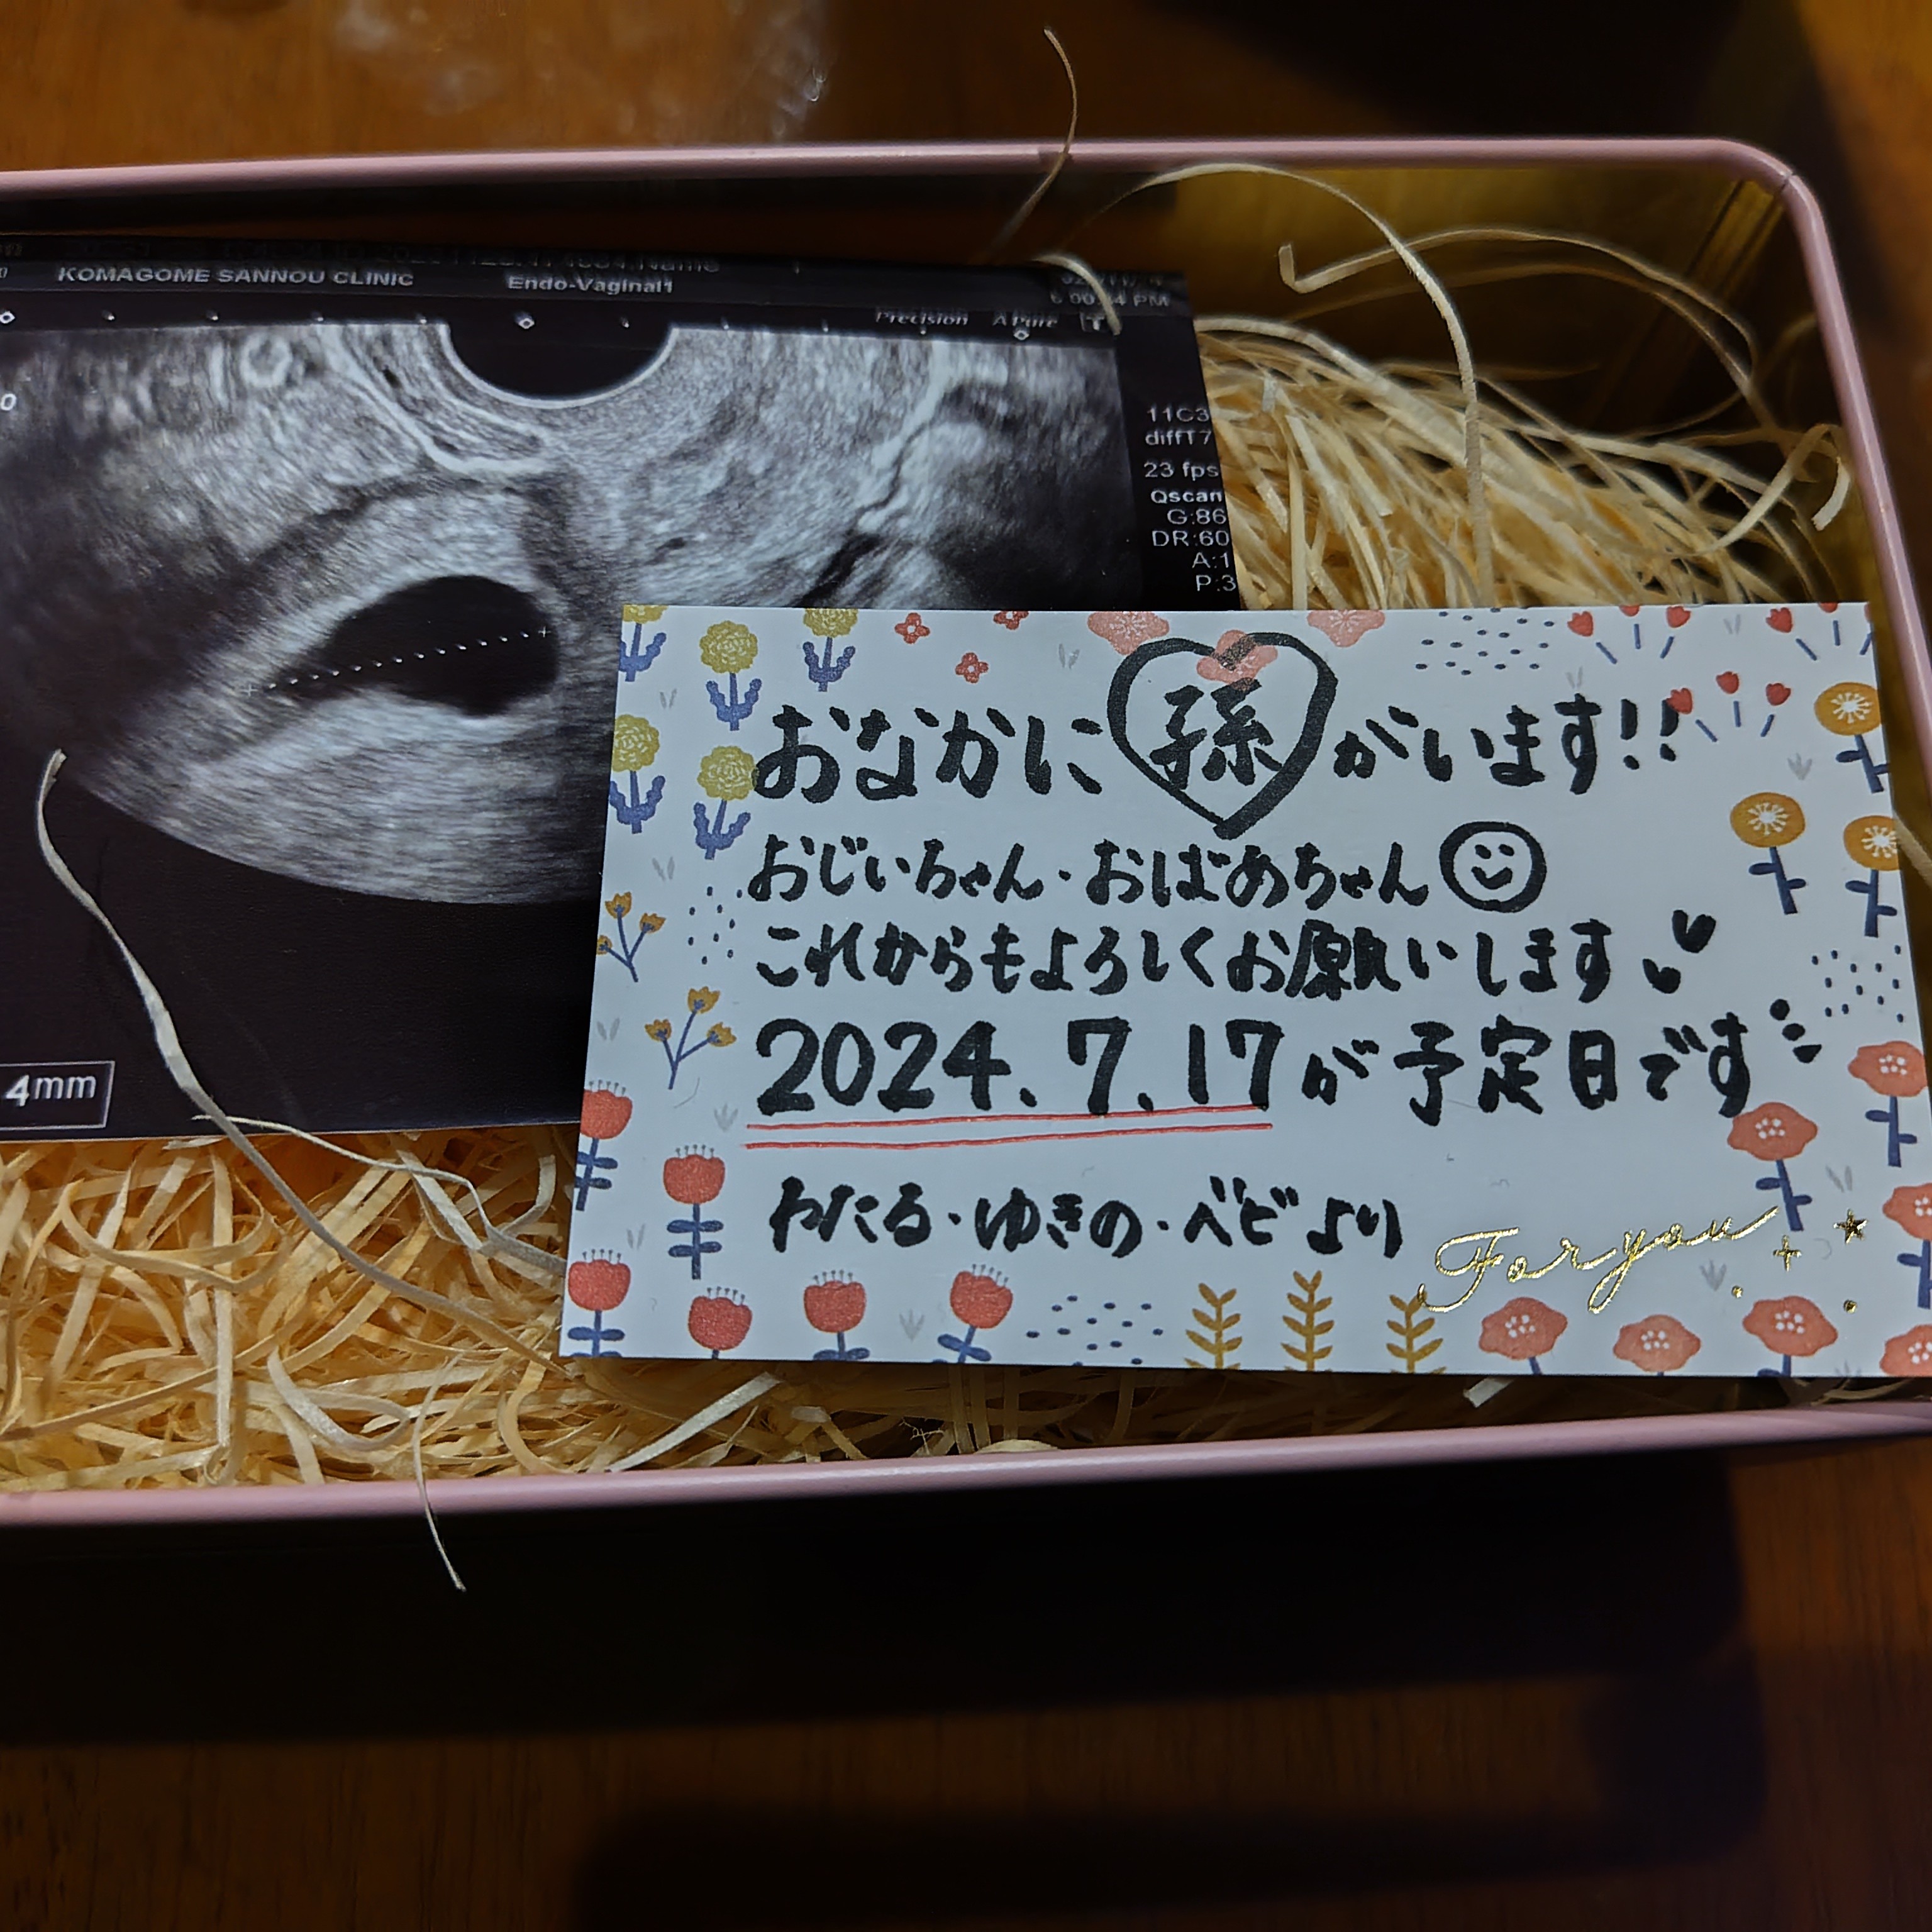 KOMAGOME SANNOU CLINIC
Endo-Vaginal1
Precision A Pure
11C3
diffT7
23 fps
Qscan
G:86
DR:60
A:1
P:3
4mm
おなかに孫がいます!!
おじいちゃん・おばあちゃん
これからもよろしくお願いします
2024.7.17が予定日です
わたる・ゆきの・ベビより
For you